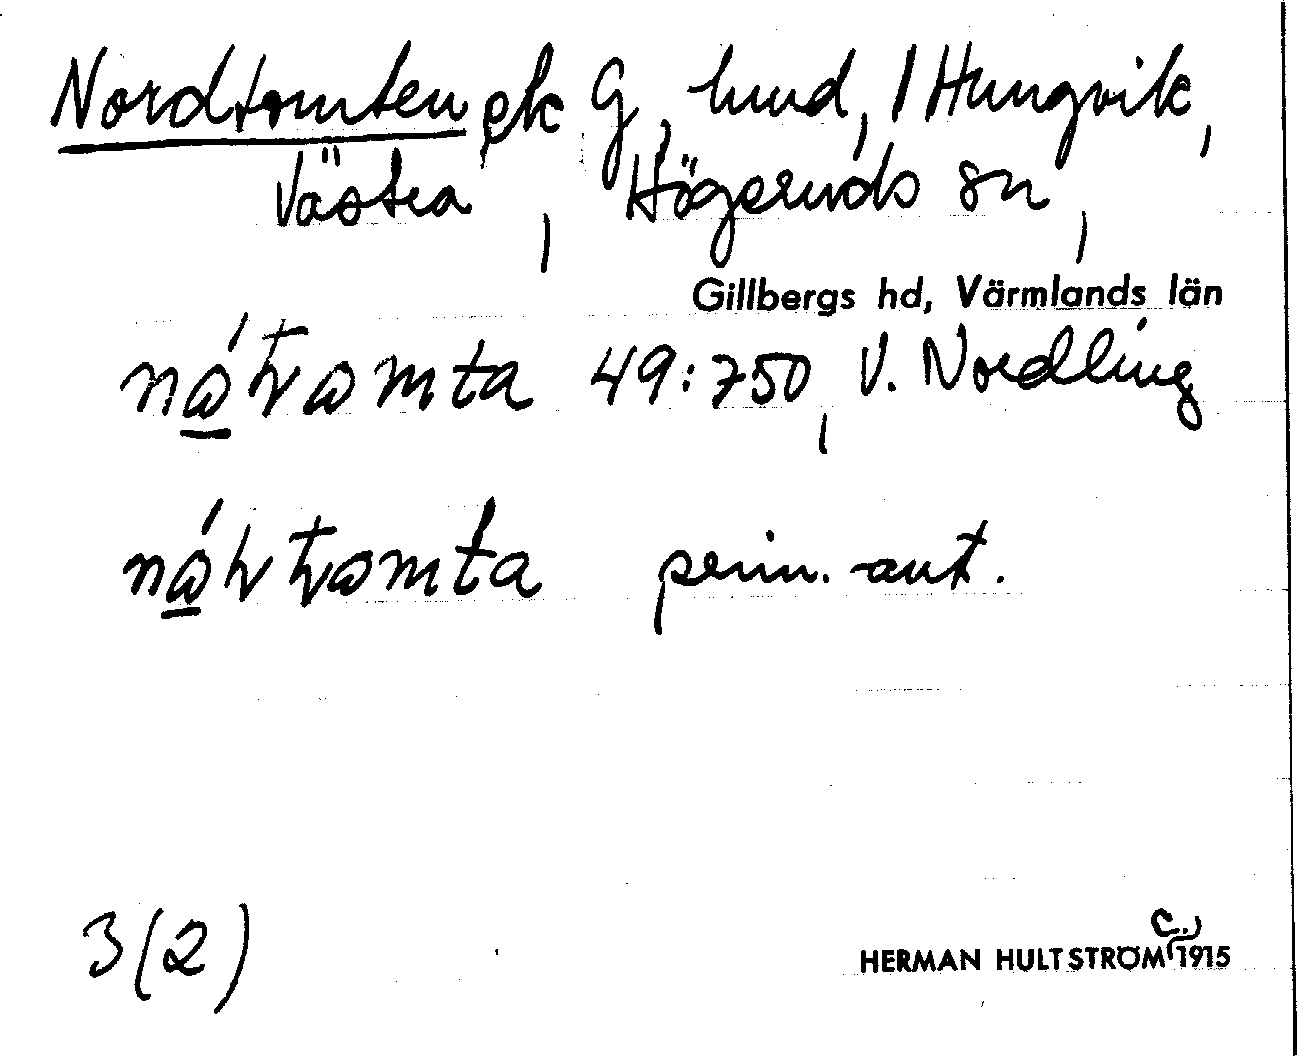 Nordtomten ek G, hmd, / Hungvik,
Västra, Högeruds sn,
Gillbergs hd, Värmlands län
nátomta 49:750, V. Nordling
nártomta pein. ant.
3(2)
HERMAN HULTSTRÖM c. 1915